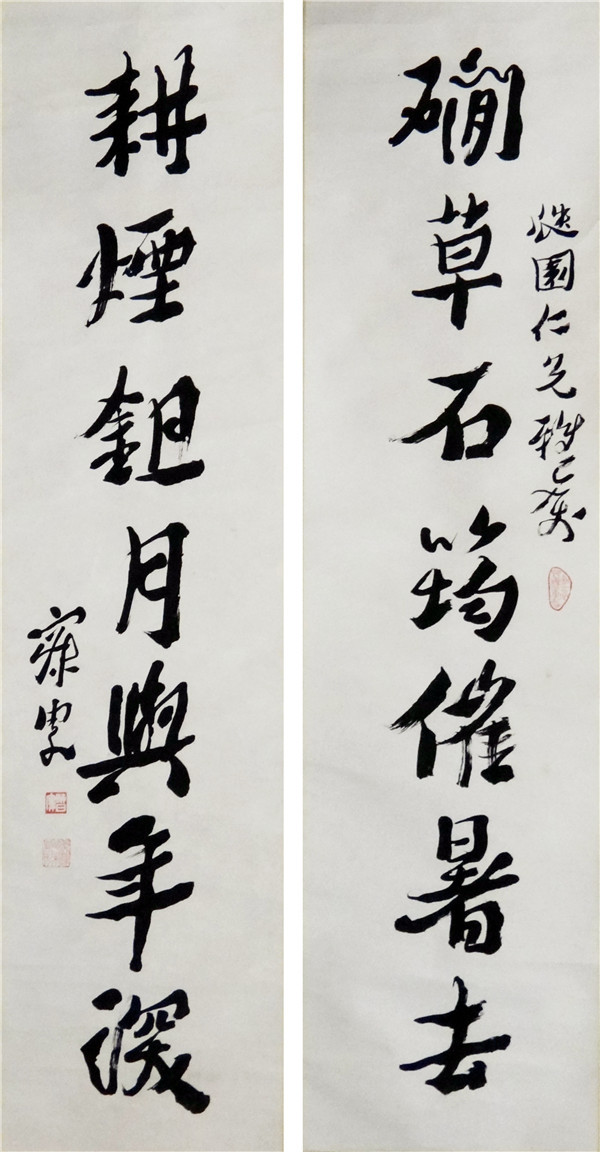 園仁兄雅
磵草石筠催暑去
耕煙鉏月與年深
寐叟